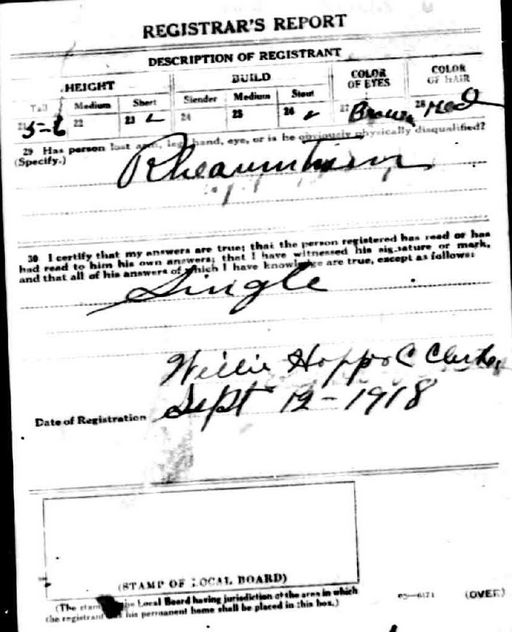 REGISTRAR'S REPORT
DESCRIPTION OF REGISTRANT
HEIGHT BUILD COLOR OF EYES COLOR OF HAIR
Tall Medium Short Slender Medium Stout
21 5-6 22 23 ✓ 24 25 26 ✓ 27 Brown 28
29 Has person lost arm, leg, hand, eye, or is he obviously physically disqualified?
(Specify.)
Rheaumtism
30 I certify that my answers are true; that the person registered has read or has
had read to him his own answers; that I have witnessed his signature or mark,
and that all of his answers of which I have knowledge are true, except as follows:
Single
Willie Hopps C Clerk
Date of Registration Sept 12-1918
(STAMP OF LOCAL BOARD)
(The stamp of the Local Board having jurisdiction of the area in which
the registrant has his permanent home shall be placed in this box.)
03-6171 (OVER)